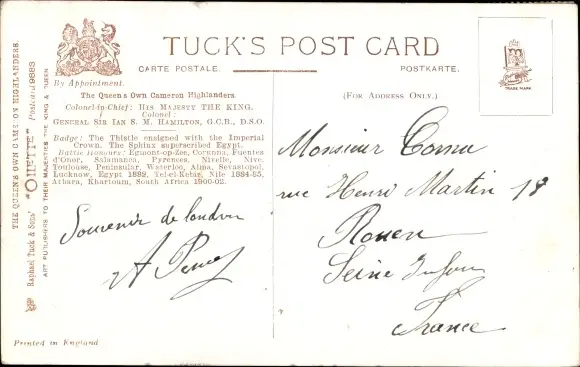 TUCK'S POST CARD
CARTE POSTALE. POSTKARTE.
(FOR ADDRESS ONLY.)
By Appointment.
The Queen's Own Cameron Highlanders.
Colonel-in-Chief: HIS MAJESTY THE KING.
Colonel:
GENERAL SIR IAN S. M. HAMILTON, G.C.B., D.S.O.
Badge: The Thistle ensigned with the Imperial
Crown. The Sphinx superscribed Egypt.
Battle Honours: Egmont-op-Zee, Corunna, Fuentes
d'Onor, Salamanca, Pyrenees, Nivelle, Nive,
Toulouse, Peninsular, Waterloo, Alma, Sevastopol,
Lucknow, Egypt 1882, Tel-el-Kebir, Nile 1884-85,
Atbara, Khartoum, South Africa 1900-02.
Souvenir de londres
A
Monsieur Cornu
rue Henri Martin 18
Rouen
Seine Infre
France
THE QUEEN'S OWN CAMERON HIGHLANDERS.
Raphael Tuck & Sons' "OILETTE" Postcard 9883
ART PUBLISHERS TO THEIR MAJESTIES THE KING & QUEEN
TRADE MARK
Printed in England